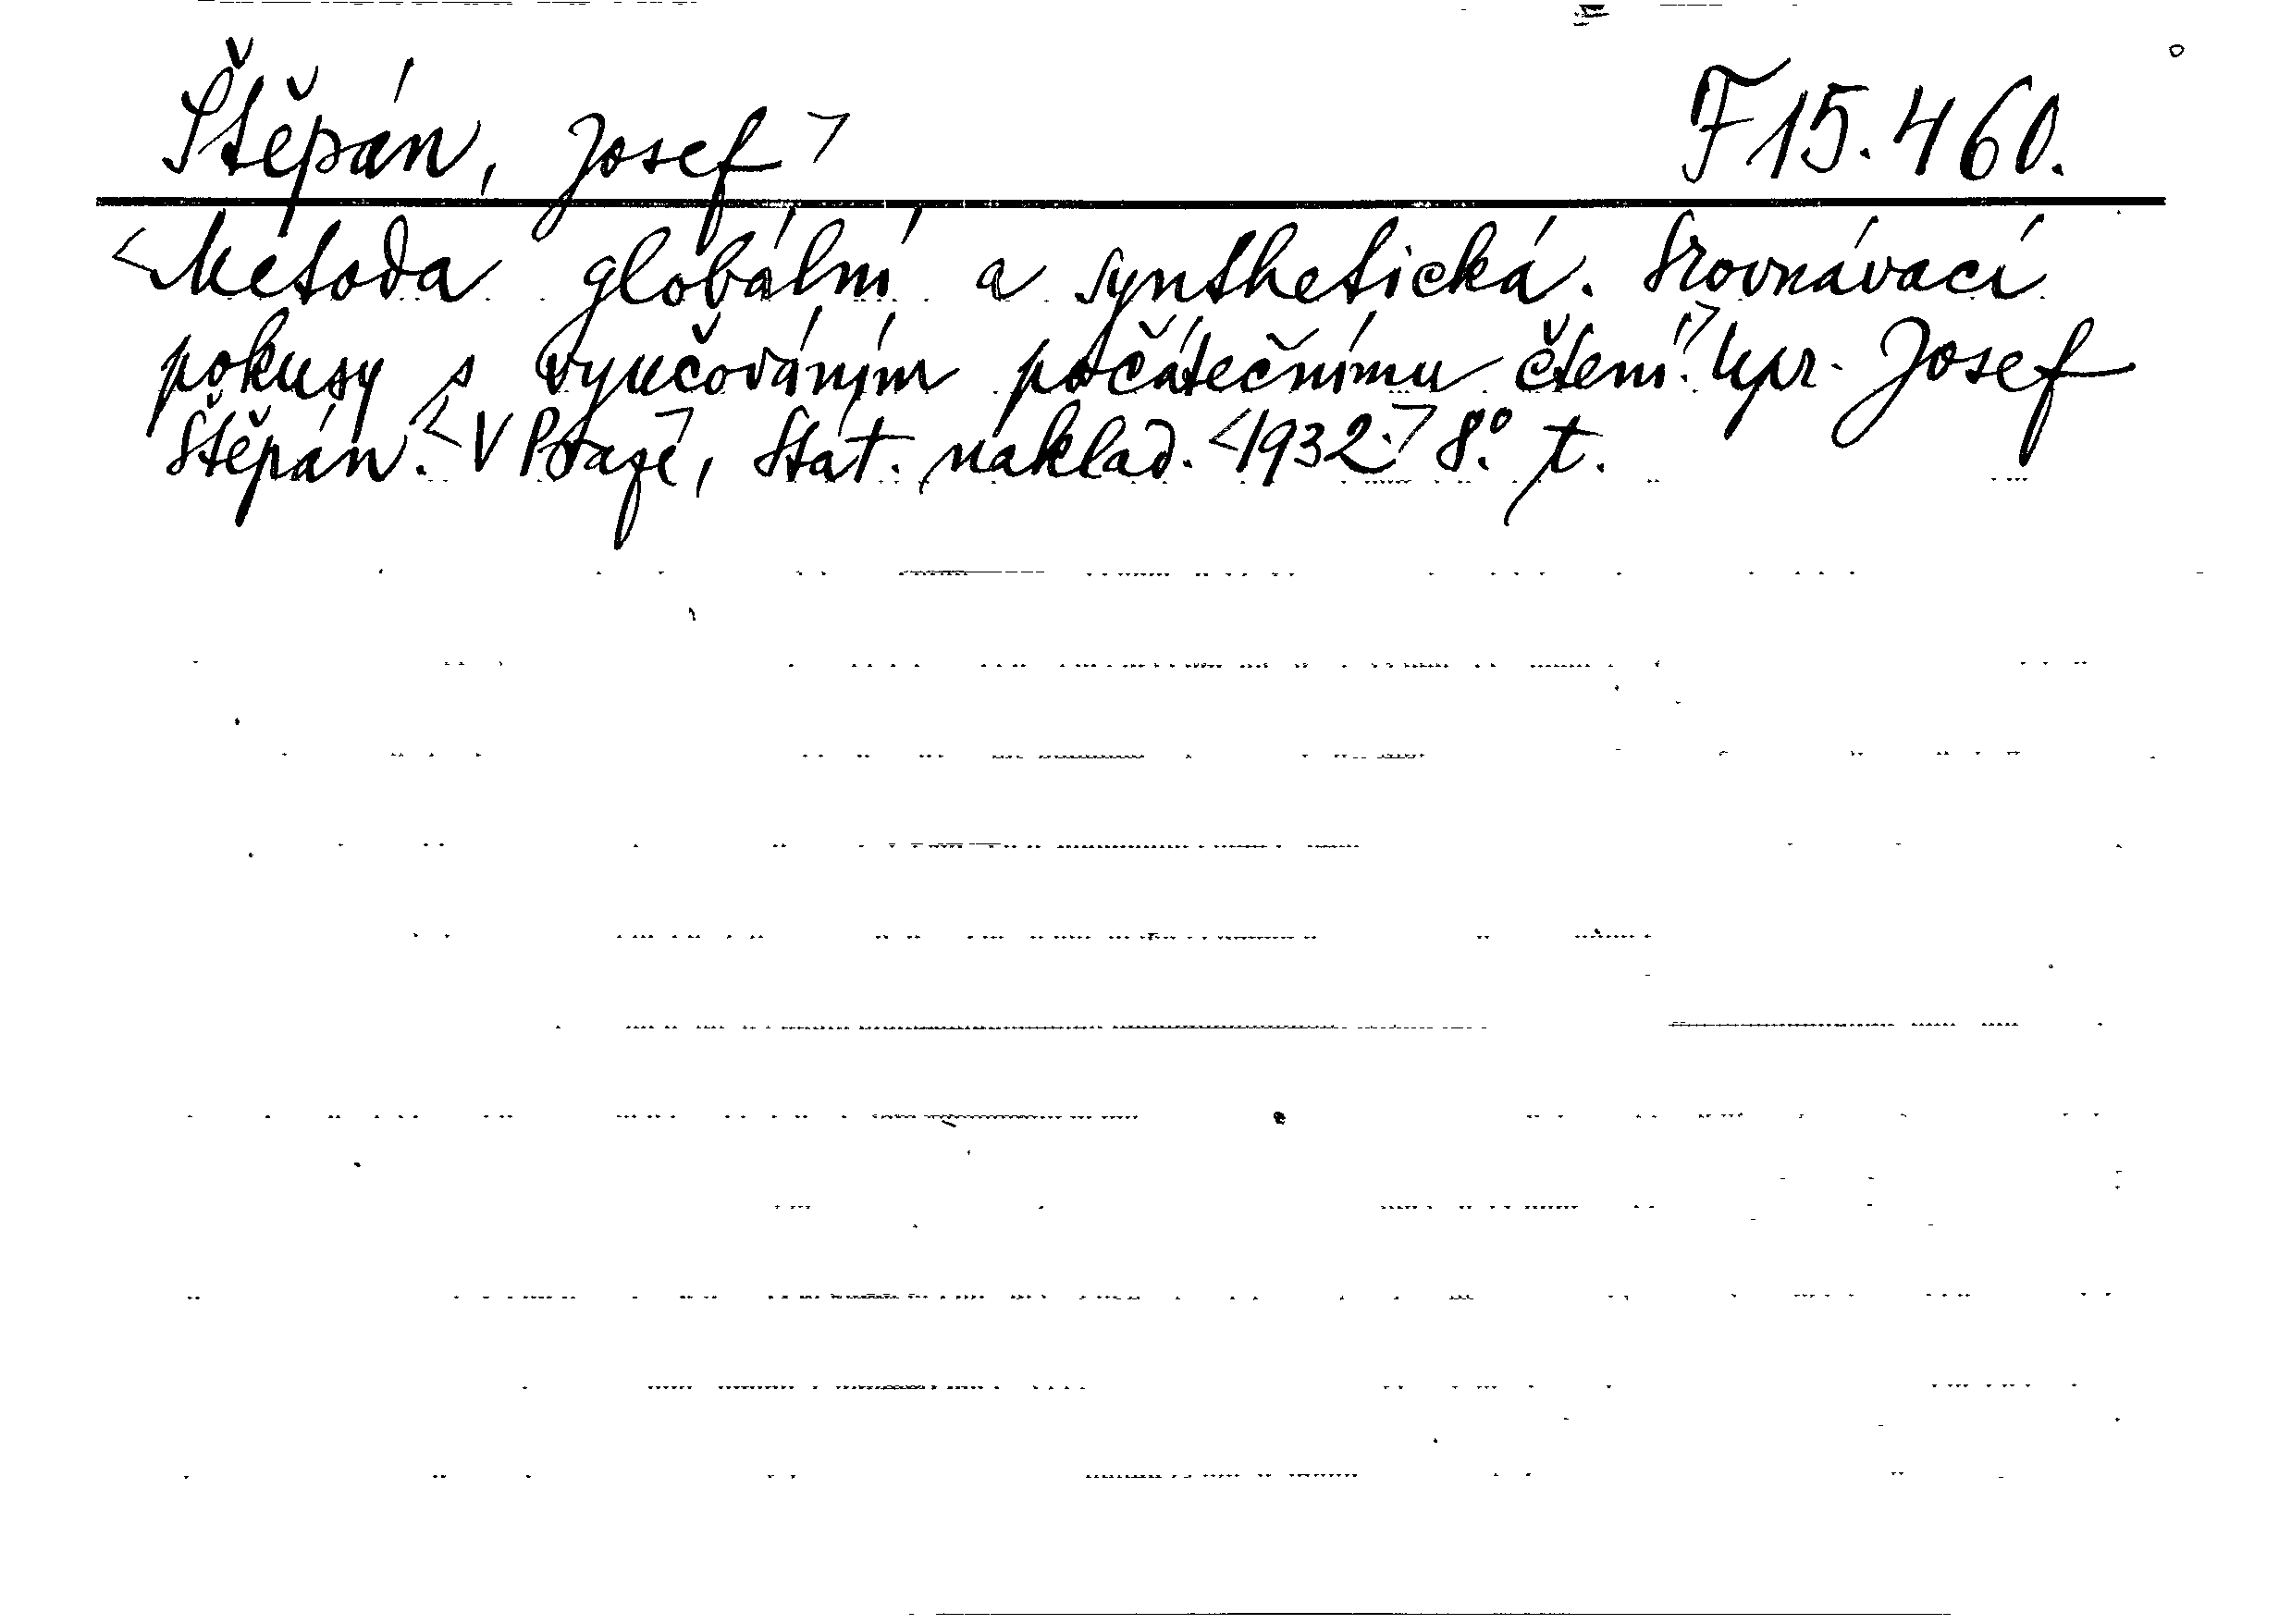 Štěpán, Josef ┐ F 15.460.
<Metoda globální a synthetická. Srovnávací
pokusy s vyučováním počátečnímu čtení.┐ Upr. Josef
Štěpán. <V Praze┐, Stát. náklad. <1932.┐ 8°. t.